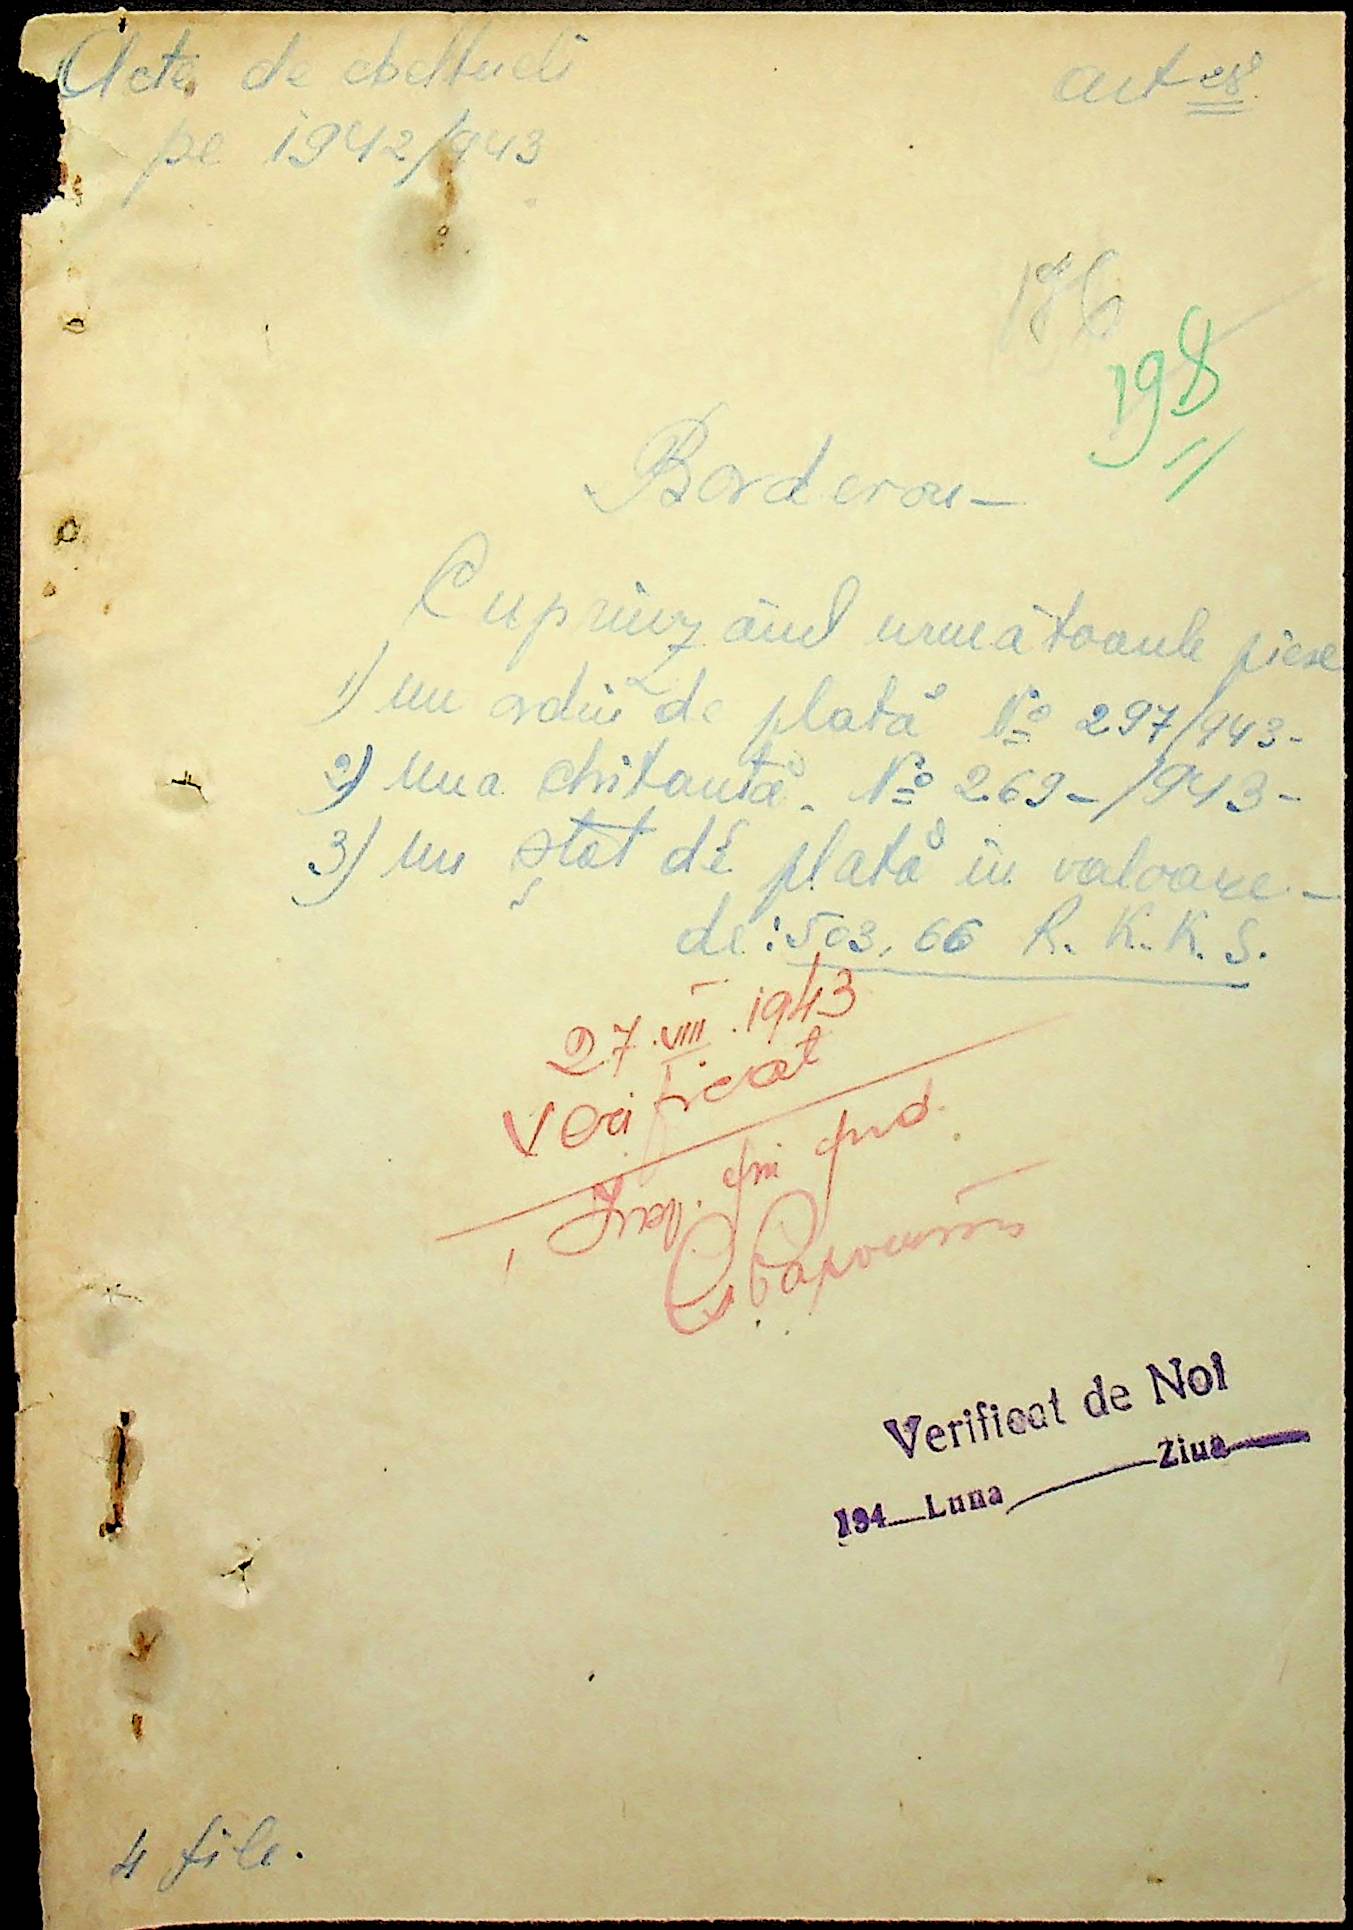 Acte de cheltueli
art 28
pe 1942/943
196
198
Borderou-
Cuprinzând următoarele piese
1) un ordin de plată No 297/943-
2) una chitanță. No 269-/943-
3) un ștat de plată în valoare-
de: 503,66 R.K.K.S.
27.VIII.1943
Verificat
Verificat de Noi
194 Luna Ziua
4 file.